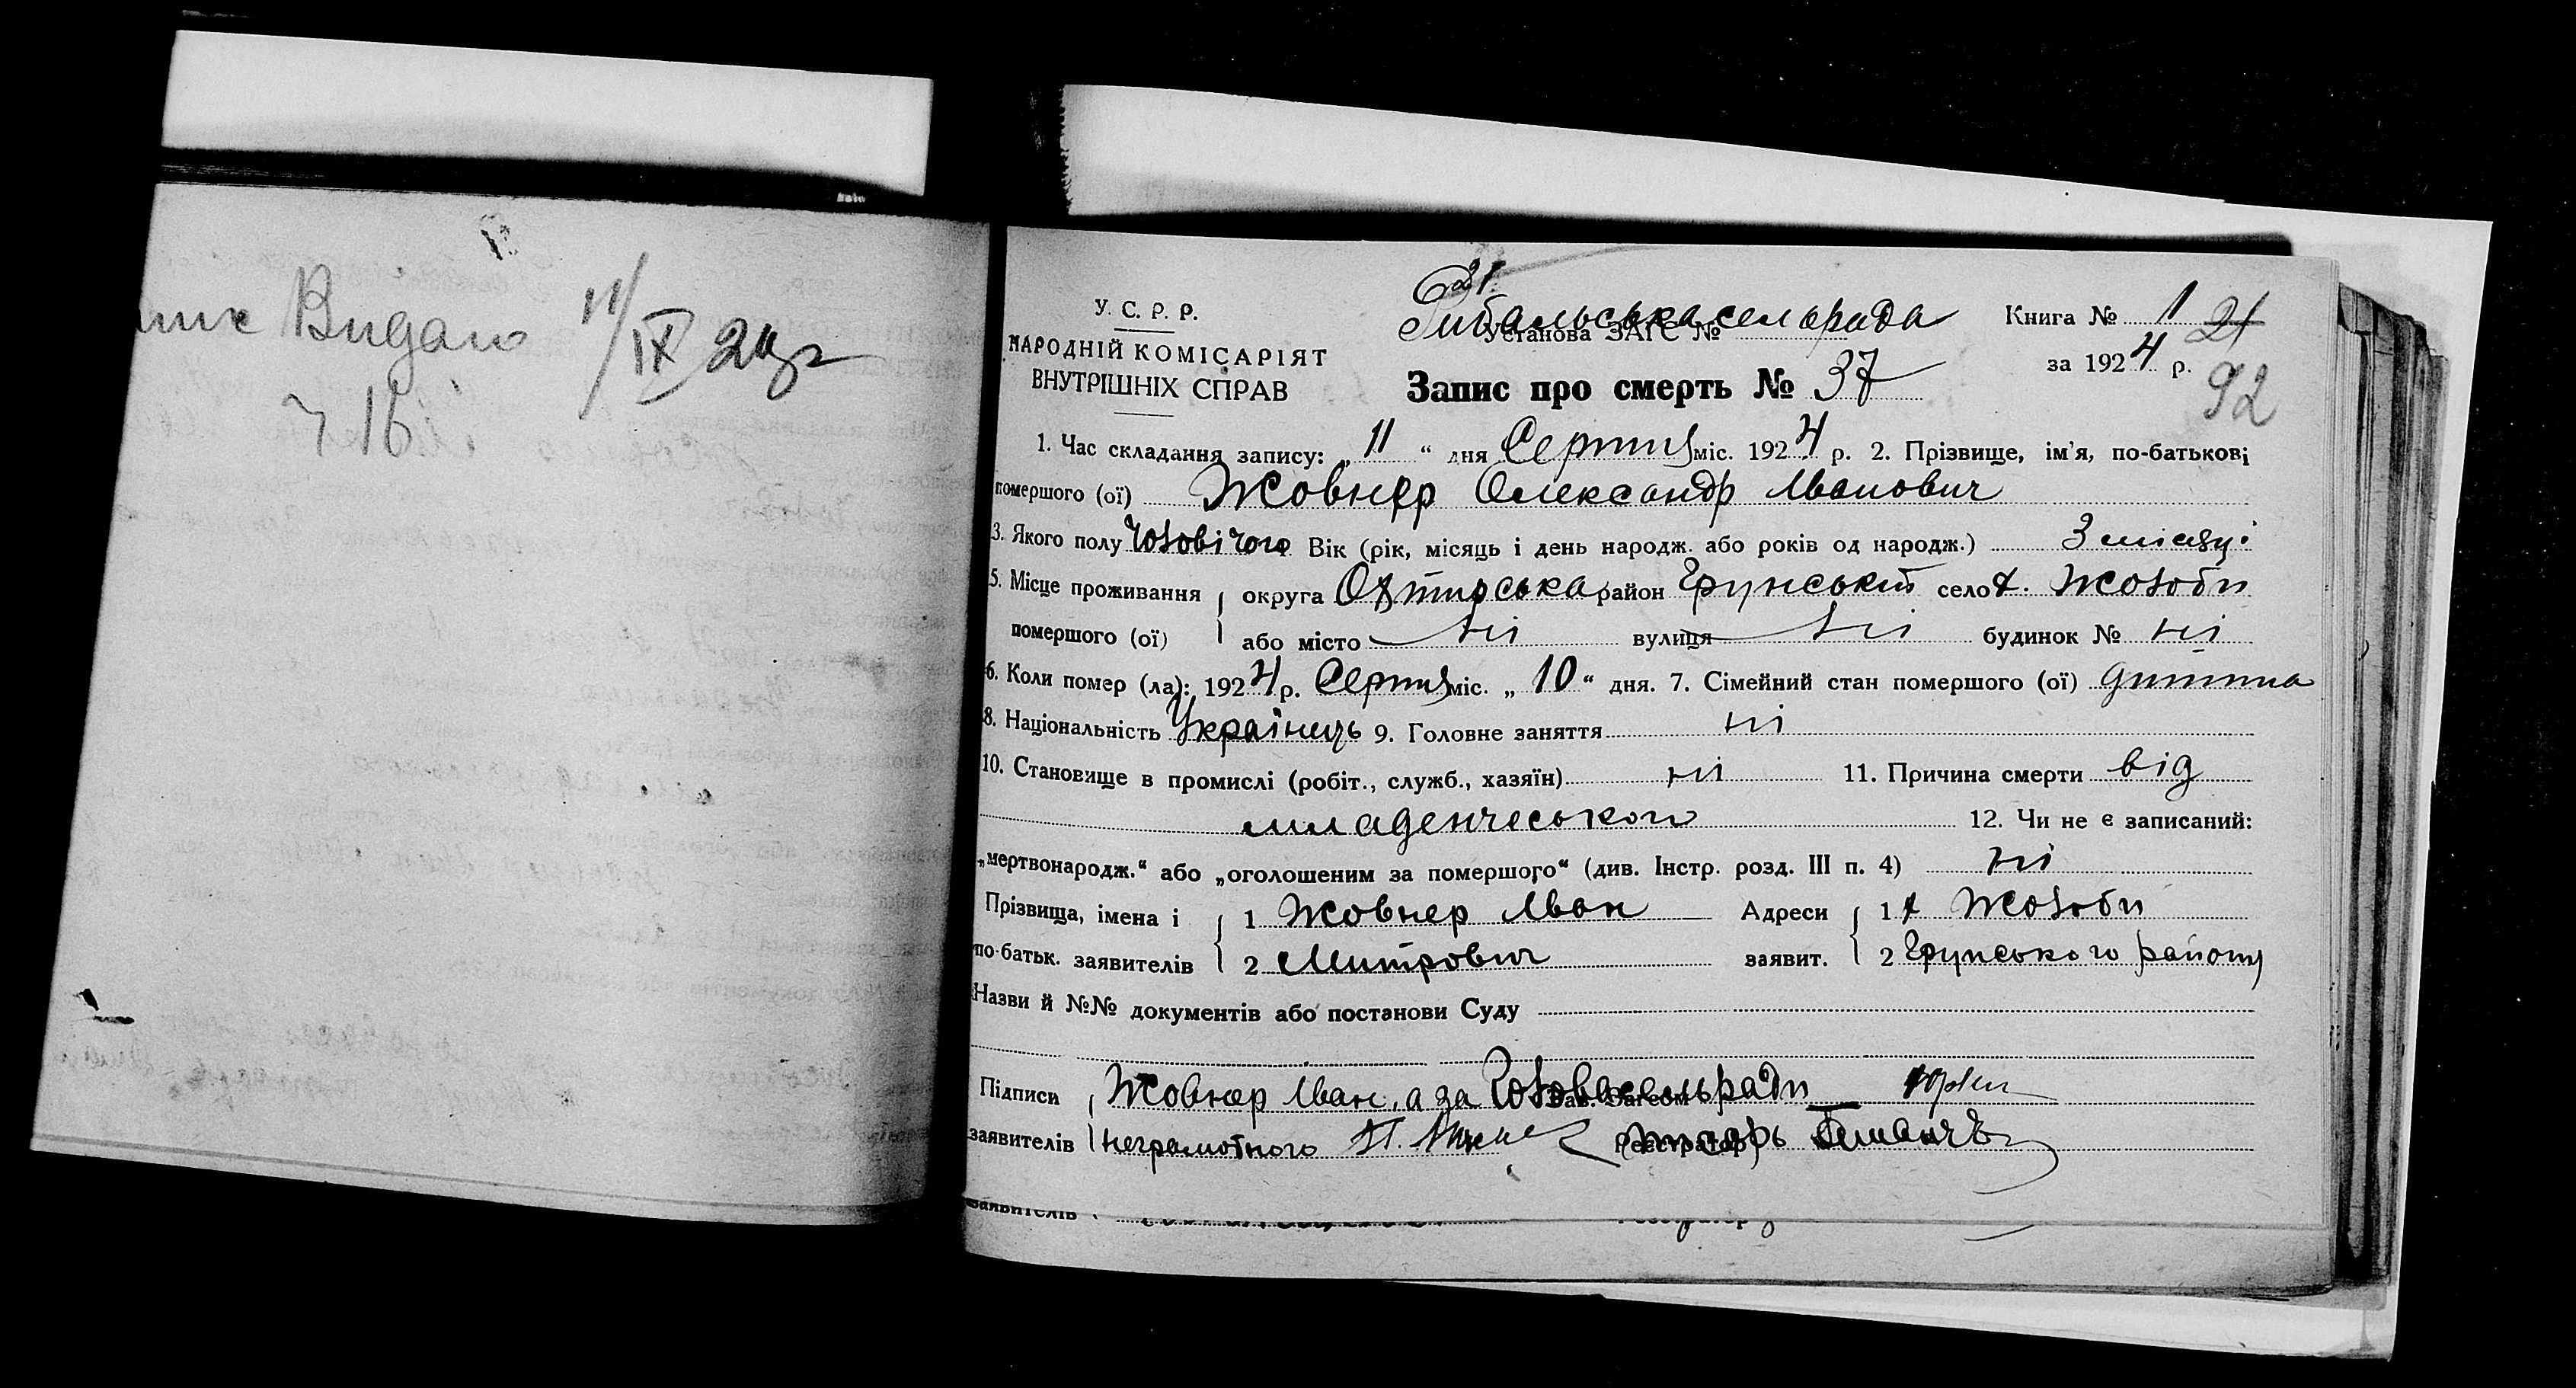 Видано 11/IX 24р
7 16
21
У. С. Р. Р.
НАРОДНІЙ КОМІСАРІЯТ
ВНУТРІШНІХ СПРАВ
Рибальська сельрада
Установа ЗАГС №
Запис про смерть № 37
Книга № 1 21
за 1924 р.
92
1. Час складання запису: „ 11 “ дня Серпня міс. 1924 р. 2. Прізвище, ім'я, по-батькові
помершого (ої) Жовнер Олександр Іванович
3. Якого полу чоловічого Вік (рік, місяць і день народж. або років од народж.) 3 місяці
5. Місце проживання округа Охтирська район Грунський село х. Жолоби
помершого (ої) або місто ні вулиця ні будинок № ні
6. Коли помер (ла): 1924 р. Серпня міс. „ 10 “ дня. 7. Сімейний стан помершого (ої) дитина
8. Національність Українець 9. Головне заняття ні
10. Становище в промислі (робіт., служб., хазяїн) ні 11. Причина смерти від
младенчеського 12. Чи не є записаний:
„мертвонародж.“ або „оголошеним за помершого“ (див. Інстр. розд. III п. 4) ні
Прізвища, імена і 1 Жовнер Іван Адреси 1 х Жолоби
по-батьк. заявителів 2 Митрович заявит. 2 Грунського району
Назви й №№ документів або постанови Суду
Підписи Жовнер Іван, а за Голова сельради
заявителів неграмотного Реєстратор
заявителів